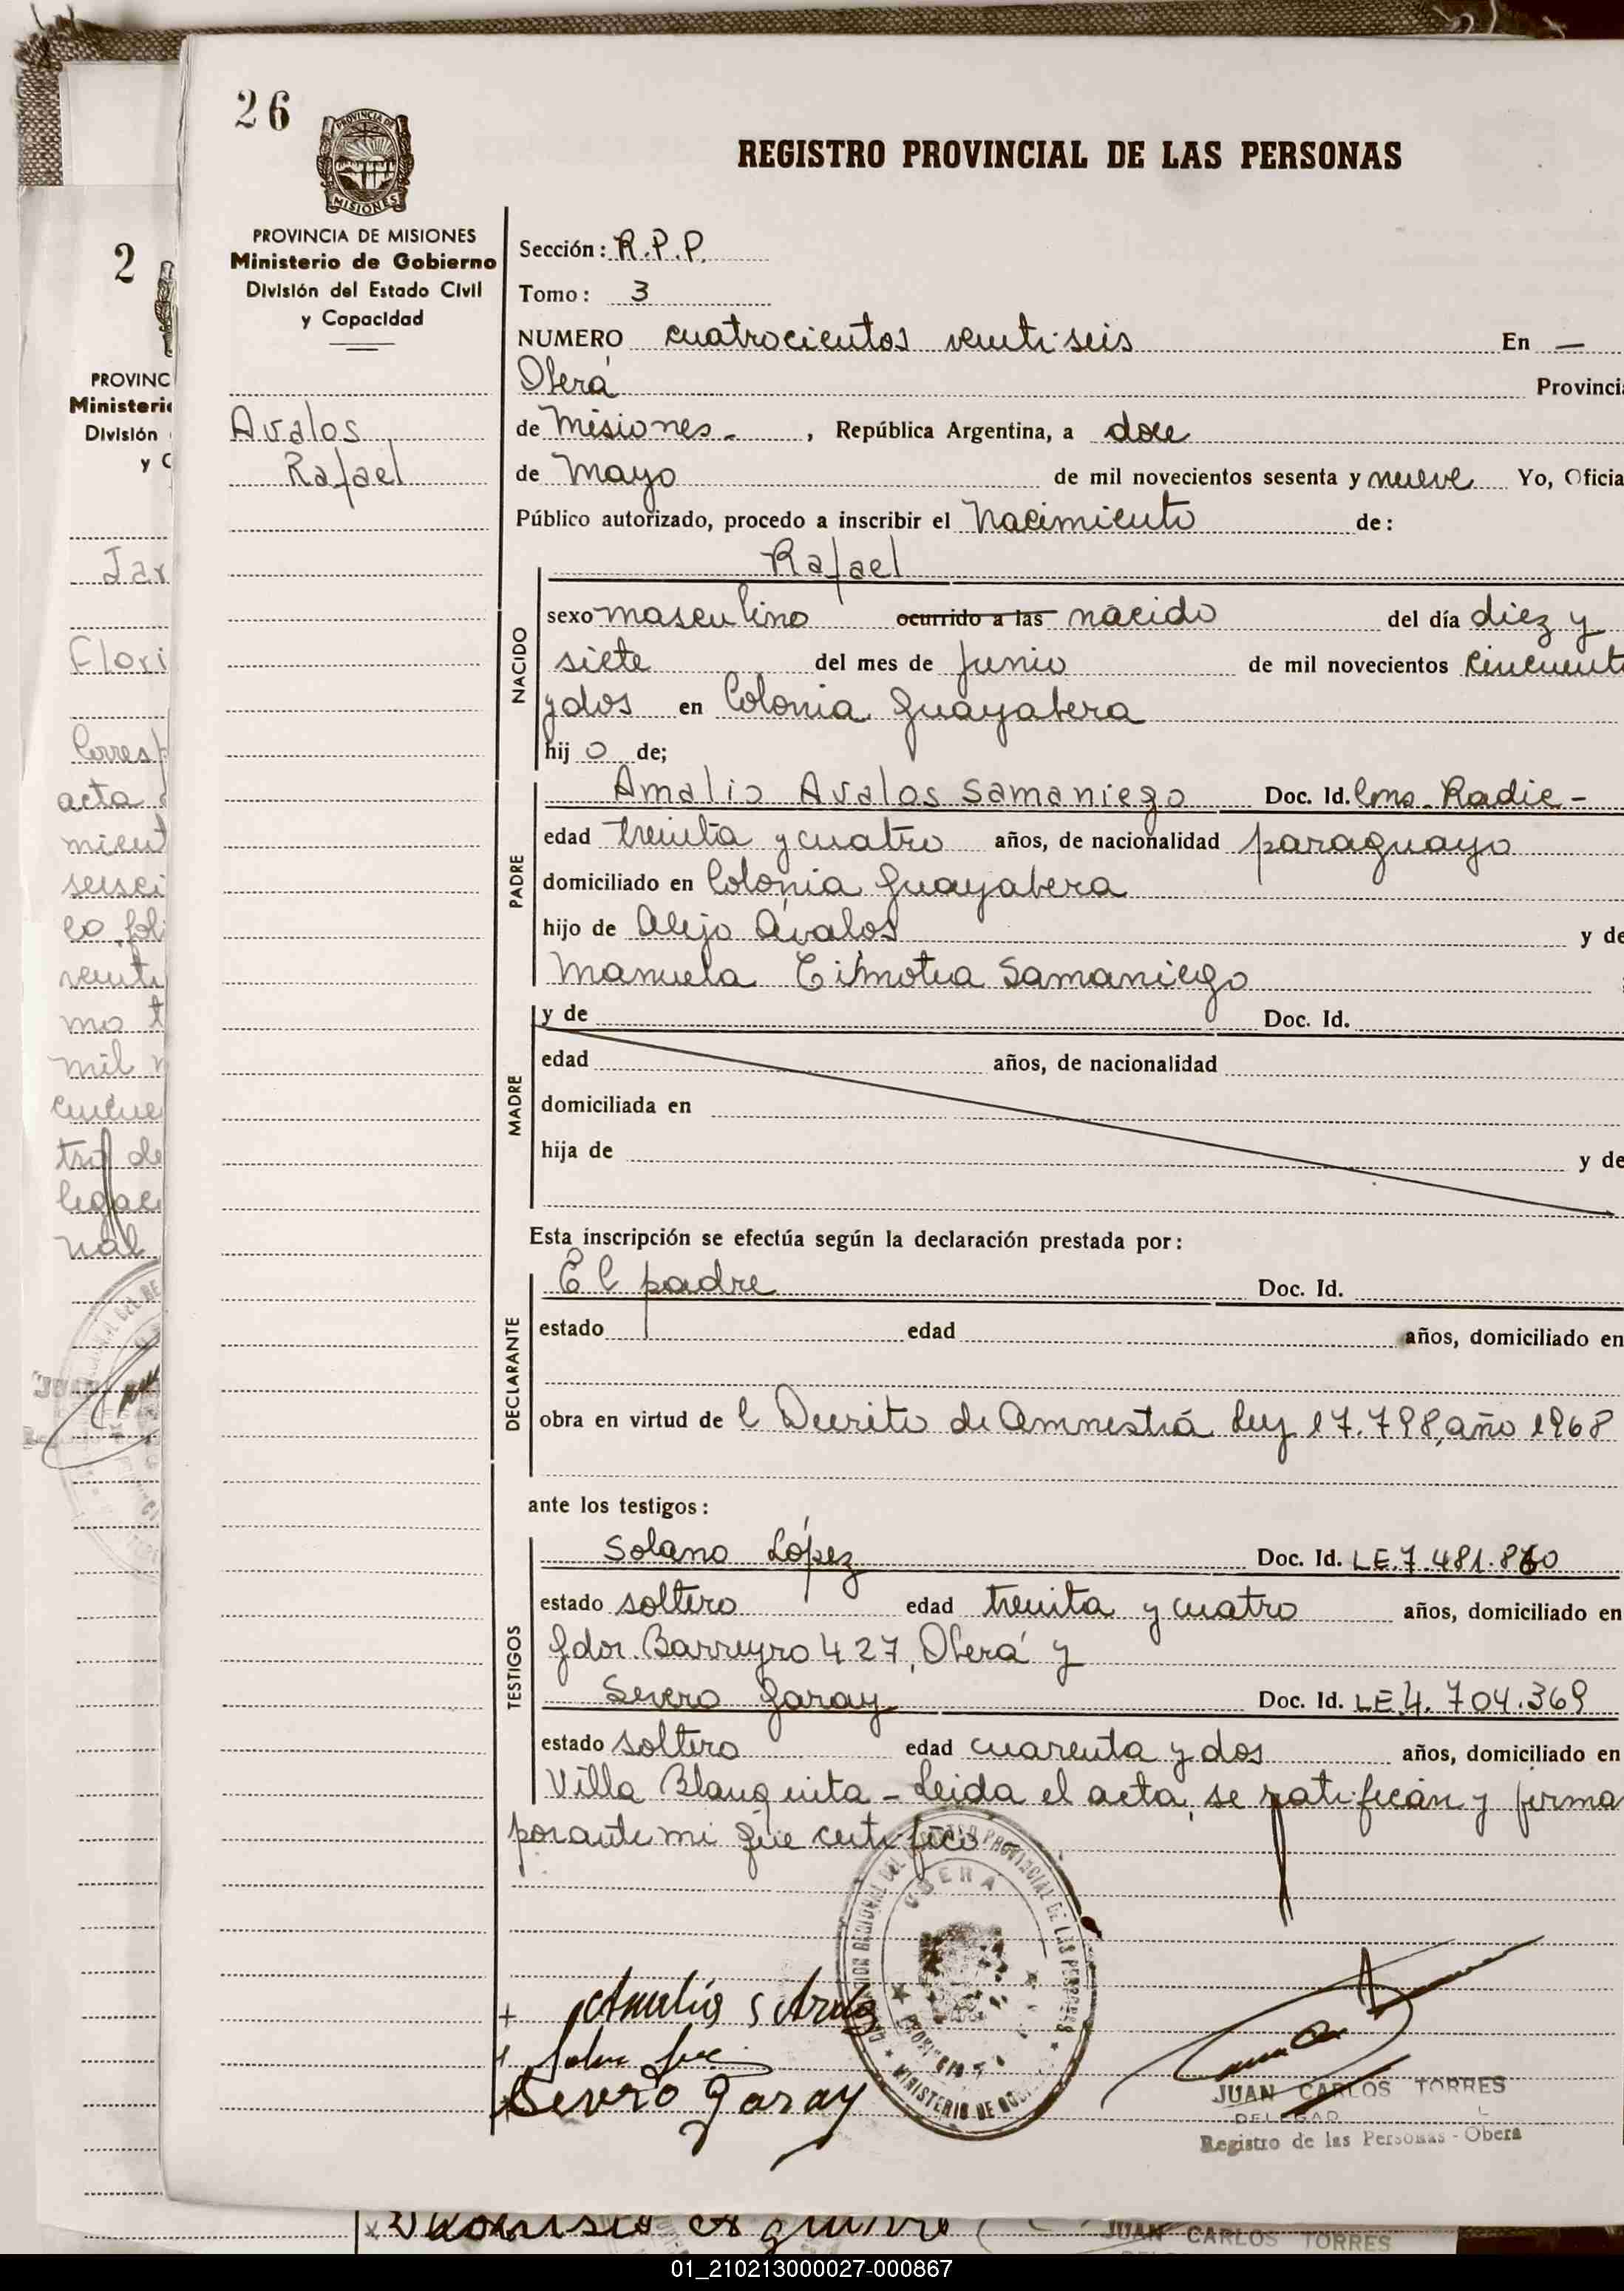 26
PROVINCIA DE
MISIONES
REGISTRO PROVINCIAL DE LAS PERSONAS
PROVINCIA DE MISIONES
Ministerio de Gobierno
División del Estado Civil
y Capacidad
Avalos
Rafael
Sección: R.P.P.
Tomo: 3
NUMERO cuatrocientos veinti seis En —
Oberá Provinci
de Misiones. , República Argentina, a doce
de Mayo de mil novecientos sesenta y nueve Yo, Oficia
Público autorizado, procedo a inscribir el Nacimiento de:
NACIDO
Rafael
sexo masculino ocurrido a las nacido del día diez y
siete del mes de Junio de mil novecientos cincuent
y dos en Colonia Guayabera
hij o de;
PADRE
Amalio Avalos Samaniego Doc. Id. Cma. Radic-
edad treinta y cuatro años, de nacionalidad paraguayo
domiciliado en Colonia Guayabera
hijo de Alejo Ávalos y de
Manuela Timotea Samaniego
MADRE
y de Doc. Id.
edad años, de nacionalidad
domiciliada en
hija de y de
Esta inscripción se efectúa según la declaración prestada por:
DECLARANTE
El padre Doc. Id.
estado edad años, domiciliado en
obra en virtud de l Decreto de Amnestía Ley 17.798, año 1968
ante los testigos:
TESTIGOS
Solano López Doc. Id. LE.7.481.860
estado soltero edad treinta y cuatro años, domiciliado en
Gdor. Barreyro 427, Oberá y
Severo Garay Doc. Id. LE 4.704.369
estado soltero edad cuarenta y dos años, domiciliado en
Villa Blanquita - Leida el acta, se ratifican y firma
por ante mi que certifico
OBERA
MINISTERIO DE
Severo Garay
JUAN CARLOS TORRES
Registro de las Personas - Obera
2
PROVINC
Ministeri
División
y C
Jar
Flori
Corresp
acta
mient
seisci
co foli
veinti
mo t
mil n
nal
JUAN CARLOS TORRES
01_210213000027-000867